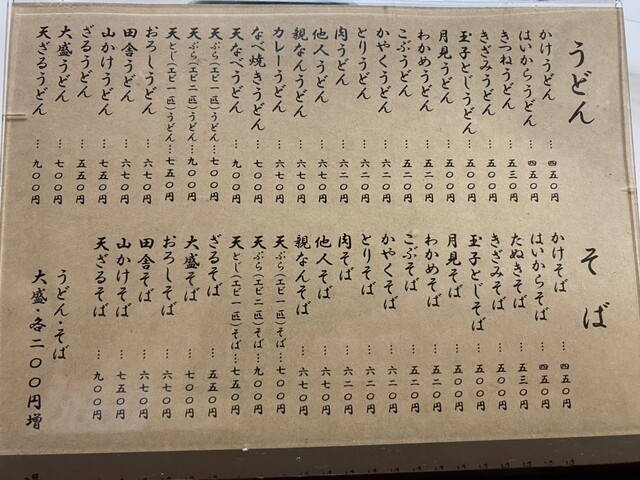 うどん
かけうどん…四五〇円
はいからうどん…四五〇円
きつねうどん…五三〇円
きざみうどん…五〇〇円
玉子とじうどん…五〇〇円
月見うどん…五〇〇円
わかめうどん…五二〇円
こぶうどん…五二〇円
かやくうどん…六二〇円
とりうどん…六二〇円
肉うどん…六二〇円
他人うどん…六七〇円
親なんうどん…六七〇円
カレーうどん…六七〇円
なべ焼きうどん…七〇〇円
天なべうどん…九〇〇円
天ぷら(エビ一匹)うどん…七〇〇円
天ぷら(エビ二匹)うどん…九〇〇円
天とじ(エビ一匹)うどん…七五〇円
おろしうどん…六七〇円
田舎うどん…六七〇円
山かけうどん…七五〇円
ざるうどん…五五〇円
大盛うどん…七〇〇円
天ざるうどん…九〇〇円
そば
かけそば…四五〇円
はいからそば…四五〇円
たぬきそば…五三〇円
きざみそば…五〇〇円
玉子とじそば…五〇〇円
月見そば…五〇〇円
わかめそば…五二〇円
こぶそば…五二〇円
かやくそば…六二〇円
とりそば…六二〇円
肉そば…六二〇円
他人そば…六七〇円
親なんそば…六七〇円
天ぷら(エビ一匹)そば…七〇〇円
天ぷら(エビ二匹)そば…九〇〇円
天とじ(エビ一匹)そば…七五〇円
ざるそば…五五〇円
大盛そば…七〇〇円
おろしそば…六七〇円
田舎そば…六七〇円
山かけそば…七五〇円
天ざるそば…九〇〇円
うどん・そば
大盛・各二〇〇円増